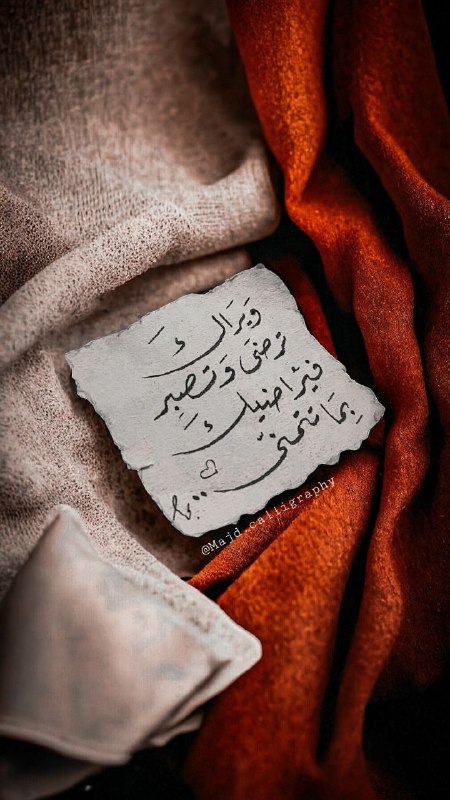 وَيَرَاكَ
تَرضَى وَتَصبِر
فيُراضيكَ
بِمَا تتمنّى
@Majd_calligraphy